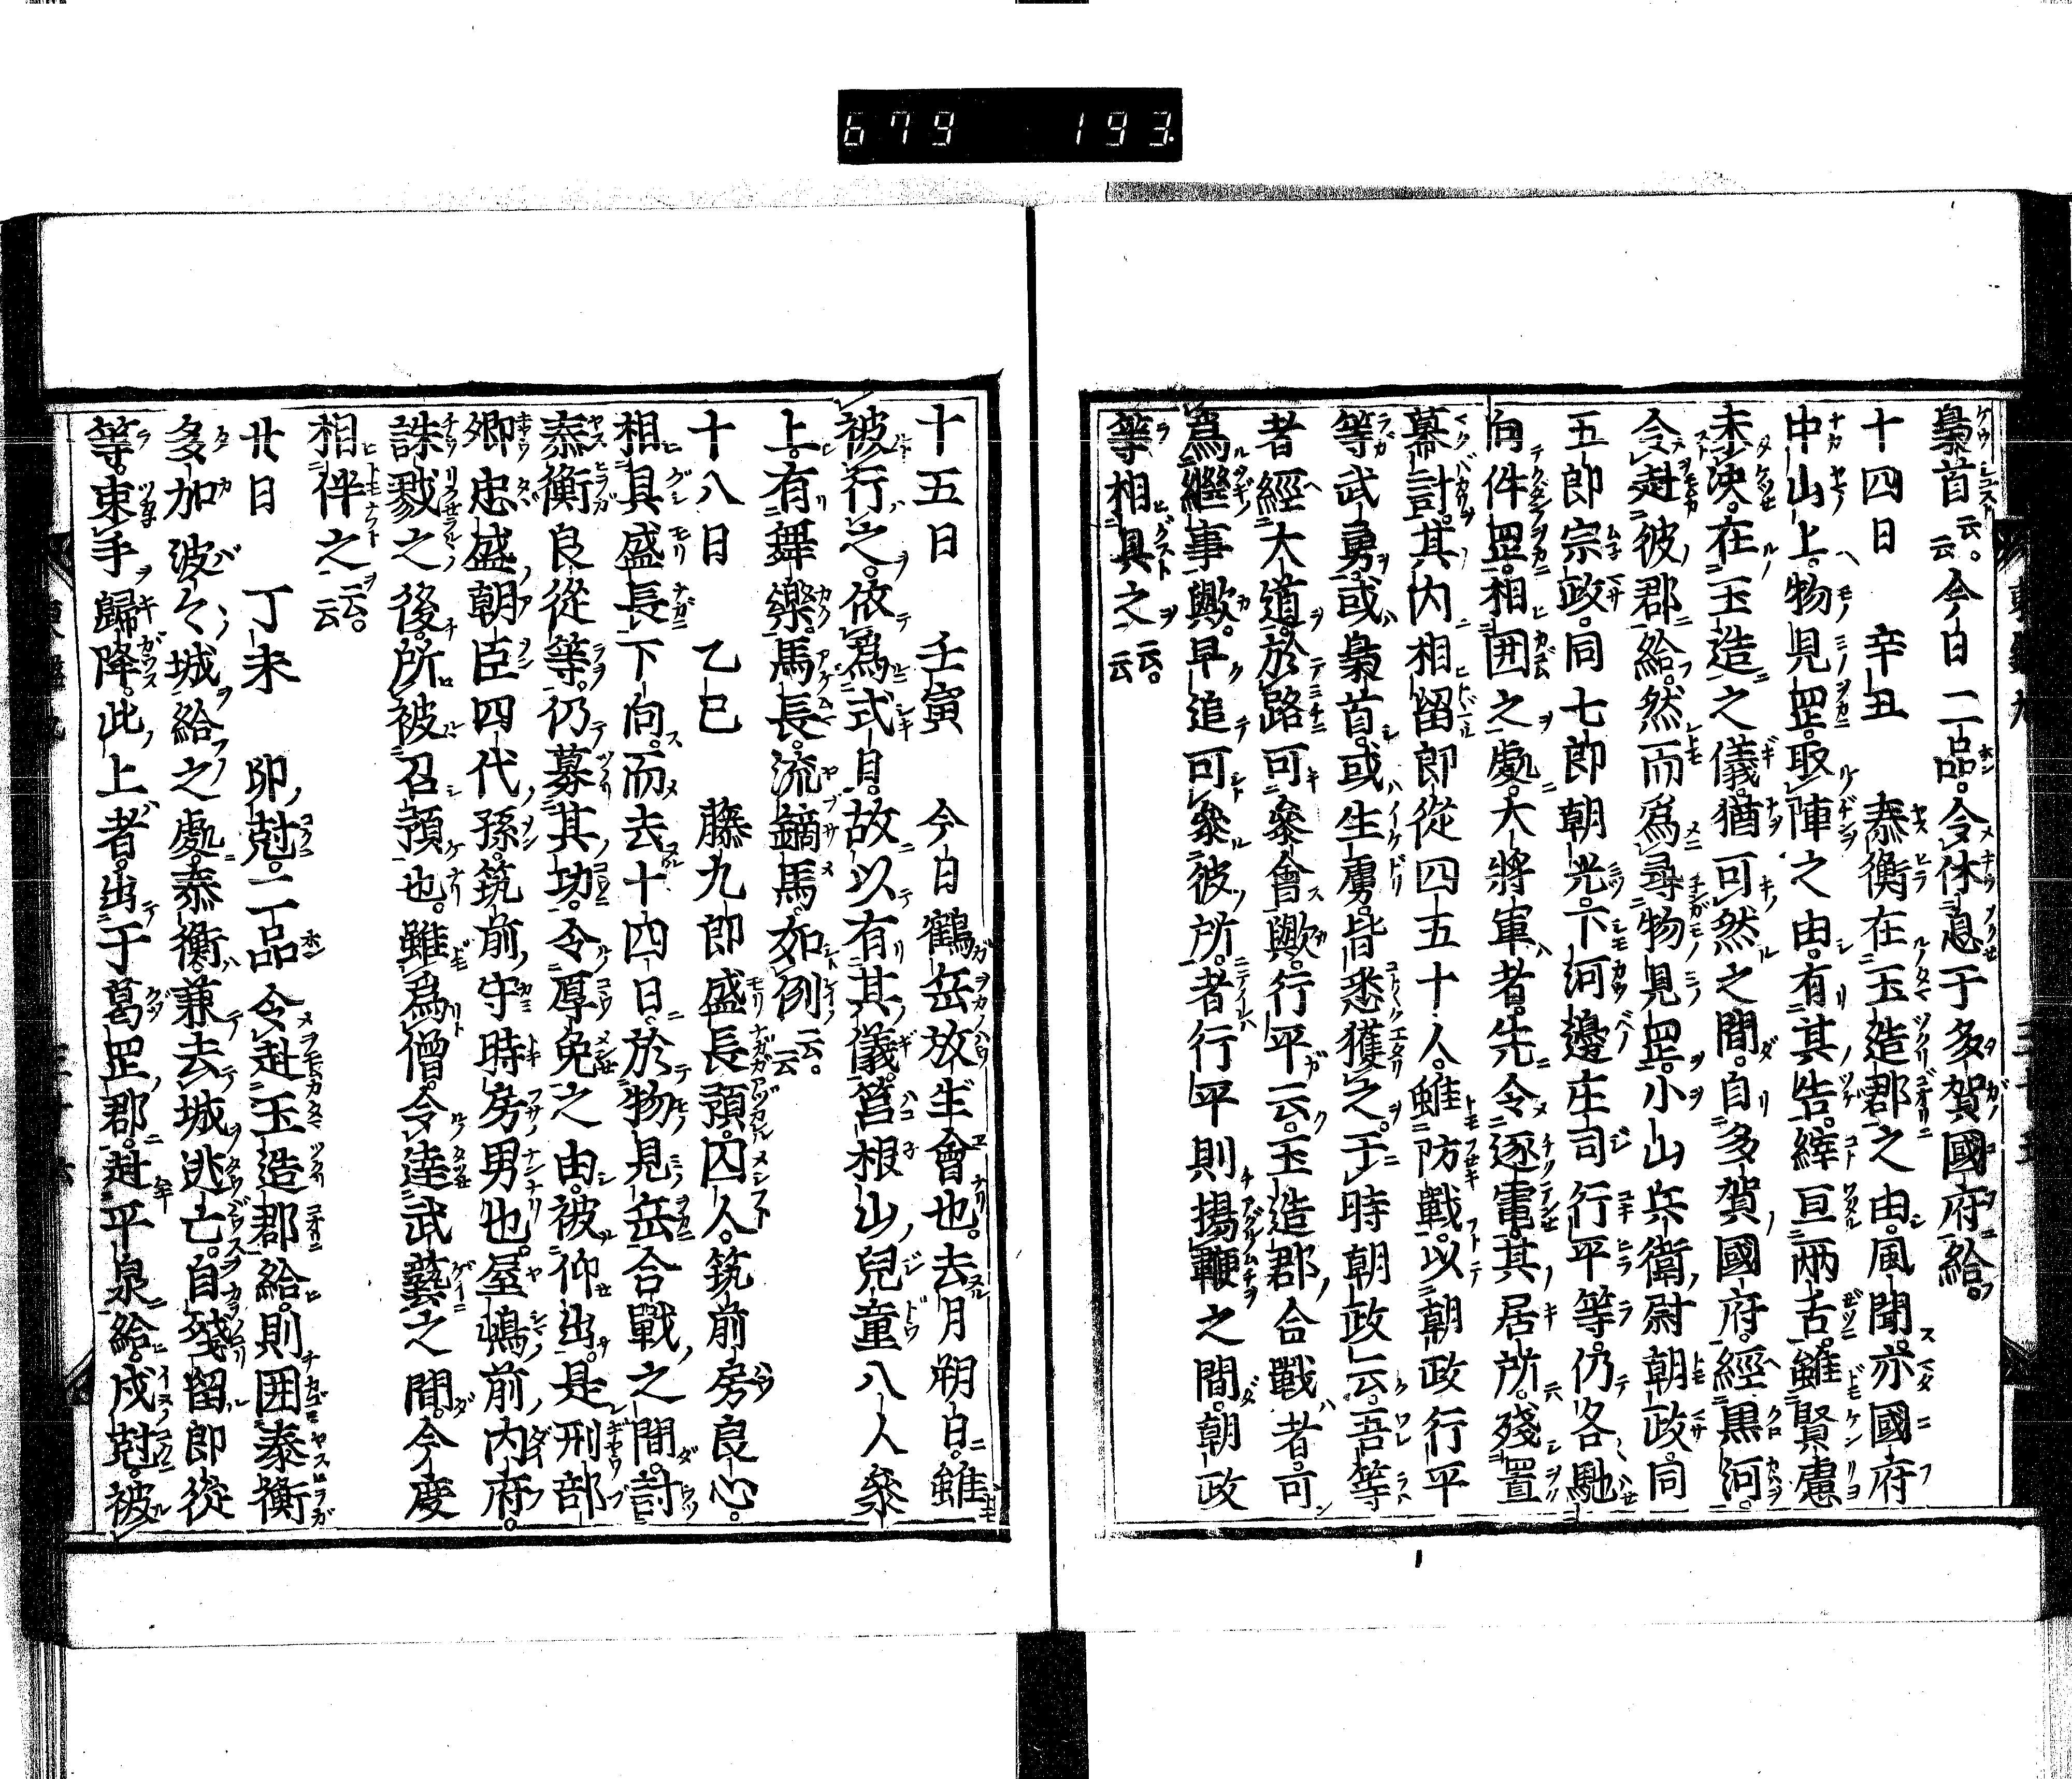 679 193
梟首云云。今日二品。令休息于多賀國府給。
十四日 辛丑 泰衡在玉造郡之由。風聞。亦國府
中山上。物見罡。取陣之由。有其告。縡亘兩舌。雖賢慮
未决。在玉造之儀。猶可然之間。自多賀國府。經黒河。
令赴彼郡給。然而爲尋物見罡。小山兵衛尉朝政。同
五郎宗政。同七郎朝光。下河邊庄司行平等。仍各馳
向件罡。相囲之處。大將軍者。先令逐電。其居所。殘置
幕計。其内相留郎從四五十人。雖防戰。以朝政行平
等武勇。或梟首。或生虜。皆悉獲之。于時朝政云。吾等
者經大道。於路可參會歟。行平云。玉造郡合戰者。可
爲繼事歟。早追可參彼所。者行平則揚鞭之間。朝政
等相具之云云。
十五日 壬寅 今日鶴岳放生會也。去月朔日。雖
被行之。依爲式日。故以有其儀。筥根山兒童八人參
上。有舞樂。馬長。流鏑馬。如例云云。
十八日 乙巳 藤九郎盛長預囚人。筑前房良心。
相具盛長下向。而去十四日。於物見岳合戰之間。討
泰衡良從等。仍募其功。令厚免之由。被仰出。是刑部
卿忠盛朝臣四代孫。筑前守時房男也。屋嶋前内府。
誅戮之後。所被召預也。雖爲僧。令達武藝之間。今度
相伴之云云。
廿日 丁未 卯尅。二品令赴玉造郡給。則囲泰衡
多加波々城給之處。泰衡兼去城逃亡。自殘留郎從
等。束手歸降。此上者。出于葛罡郡。赴平泉給。戌尅。被